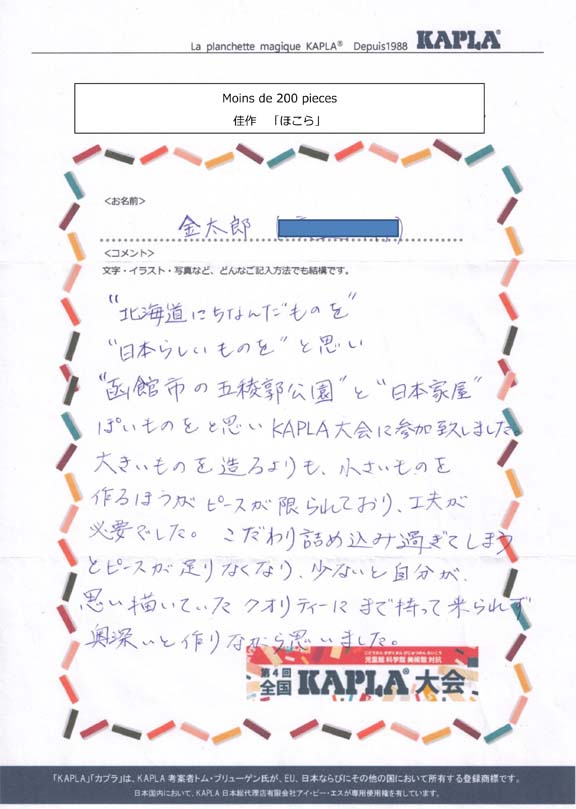 La planchette magique KAPLA® Depuis1988 KAPLA®
Moins de 200 pieces
佳作 「ほこら」
<お名前>
金太郎
<コメント>
文字・イラスト・写真など、どんなご記入方法でも結構です。
"北海道にちなんだものを"
"日本らしいものを"と思い
"函館市の五稜郭公園"と"日本家屋"
ぽいものをと思いKAPLA大会に参加致しました。
大きいものを造るよりも、小さいものを
作るほうがピースが限られており、工夫が
必要でした。こだわり詰め込み過ぎてしまう
とピースが足りなくなり、少ないと自分が、
思い描いていたクオリティーにまで持って来られず
奥深いと作りながら思いました。
じどうかん かがくかん びじゅつかん たいこう
児童館 科学館 美術館 対抗
第4回
全国 KAPLA® 大会
「KAPLA」「カプラ」は、KAPLA 考案者トム・ブリューゲン氏が、EU、日本ならびにその他の国において所有する登録商標です。
日本国内において、KAPLA 日本総代理店有限会社アイ・ピー・エスが専用使用権を有しています。